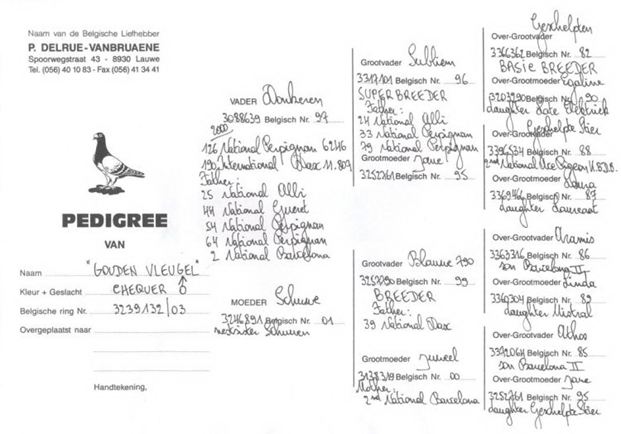 Naam van de Belgische Liefhebber
P. DELRUE-VANBRUAENE
Spoorwegstraat 43 - 8930 Lauwe
Tel. (056) 40 10 83 - Fax (056) 41 34 41
PEDIGREE
VAN
Naam "GOUDEN VLEUGEL"
Kleur + Geslacht CHEQUER ♂
Belgische ring Nr. 3239132/03
Overgeplaatst naar
Handtekening,
VADER Donkeren
3088639 Belgisch Nr. 97
2000
126 National Perpignan 6246
190 International Dax 11.807
Father:
25 National Albi
44 National Gueret
54 National Perpignan
64 National Perpignan
2 National Barcelona
MOEDER Schuwe
3246891 Belgisch Nr. 01
Grootvader Subliem
3317101 Belgisch Nr. 96
SUPER BREEDER
Father:
24 National Albi
33 National Perpignan
79 National Perpignan
Grootmoeder
3252761 Belgisch Nr. 95
Grootvader Blauwe 790
3257790 Belgisch Nr. 99
BREEDER
Father:
39 National Dax
Grootmoeder Juweel
3138319 Belgisch Nr. 00
Mother:
2nd National Barcelona
Geschelpten
Over-Grootvader
3366362 Belgisch Nr. 82
BASIC BREEDER
Over-Grootmoeder Egaline
3203290 Belgisch Nr. 90
daughter Late Electrick
Geschelpte Bier
Over-Grootvader
Belgisch Nr. 88
2nd National Ace Pigeon K.B.D.B.
Over-Grootmoeder Laura
Belgisch Nr. 87
daughter Laureaat
Over-Grootvader Aramis
3363316 Belgisch Nr. 86
son Barcelona II
Over-Grootmoeder Linda
3360304 Belgisch Nr. 89
daughter Mistral
Over-Grootvader Athos
3372064 Belgisch Nr. 85
son Barcelona II
Over-Grootmoeder Jane
3252761 Belgisch Nr. 95
daughter Geschelpte Bier